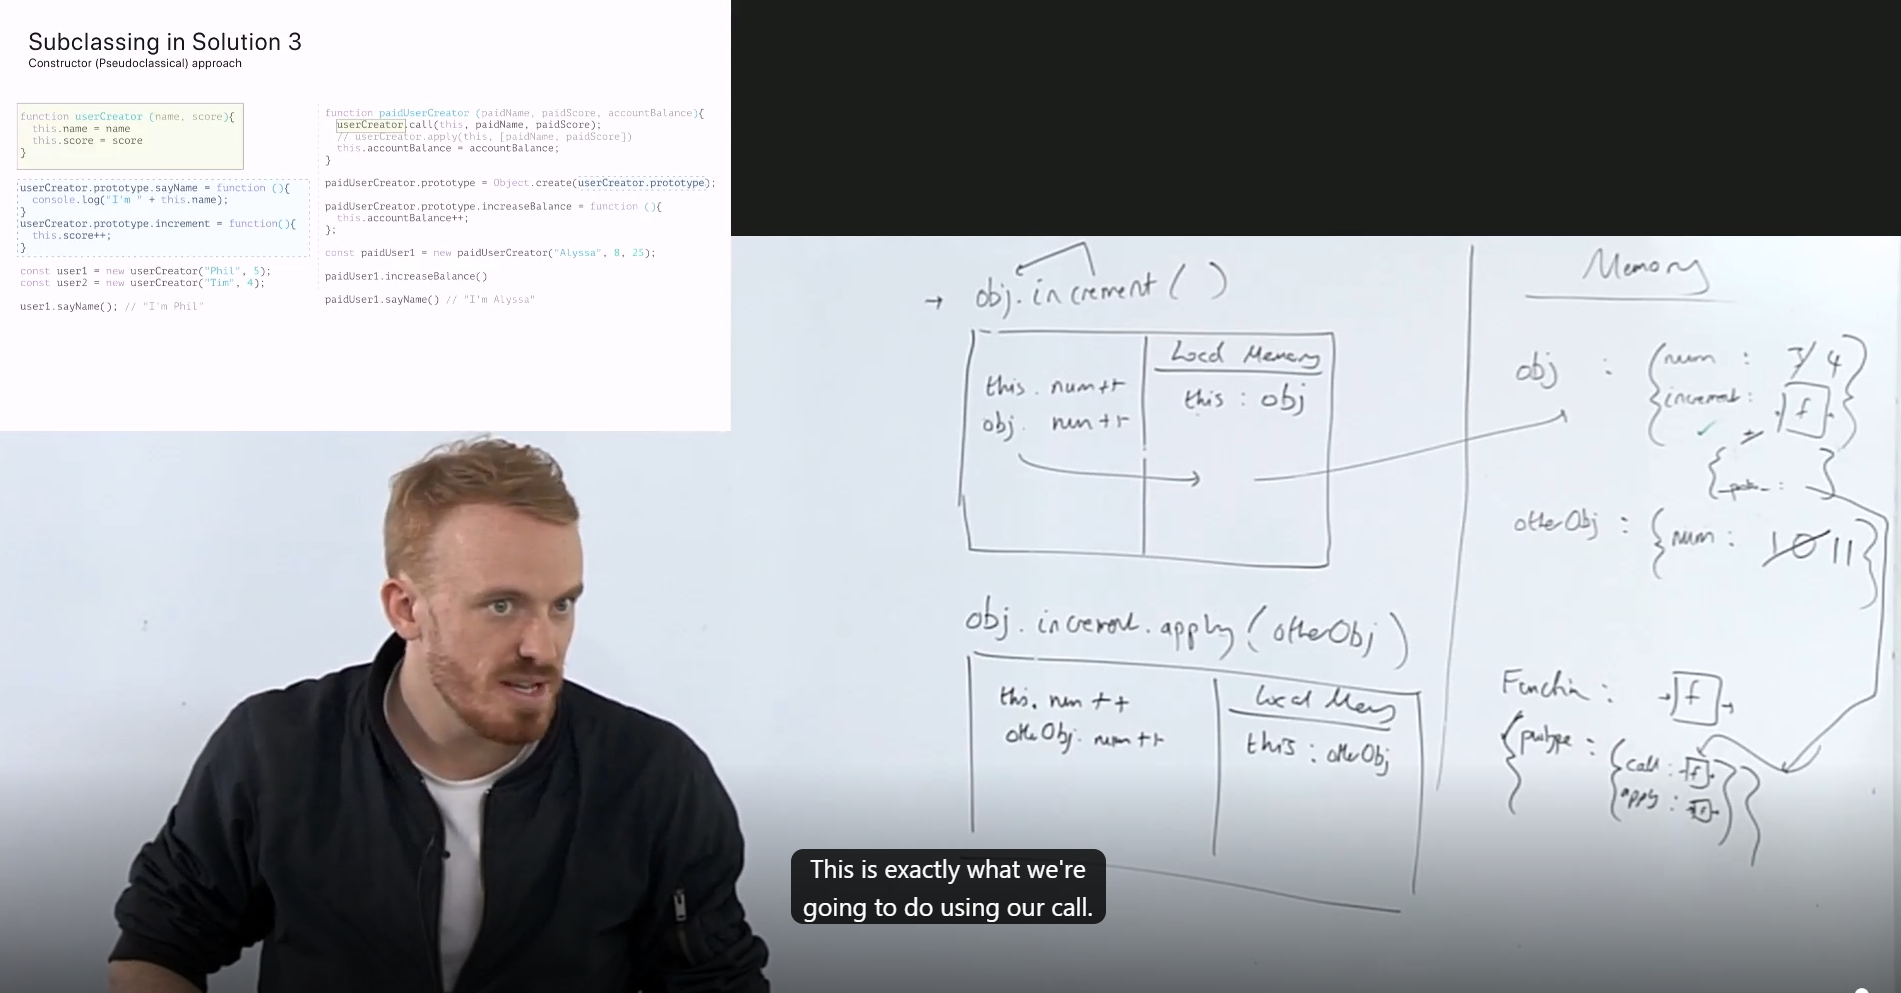 Subclassing in Solution 3
Constructor (Pseudoclassical) approach
function userCreator (name, score){
this.name = name
this.score = score
}
userCreator.prototype.sayName = function (){
console.log("I'm " + this.name);
}
userCreator.prototype.increment = function(){
this.score++;
}
const user1 = new userCreator("Phil", 5);
const user2 = new userCreator("Tim", 4);
user1.sayName(); // "I'm Phil"
function paidUserCreator (paidName, paidScore, accountBalance){
userCreator.call(this, paidName, paidScore);
// userCreator.apply(this, [paidName, paidScore])
this.accountBalance = accountBalance;
}
paidUserCreator.prototype = Object.create(userCreator.prototype);
paidUserCreator.prototype.increaseBalance = function (){
this.accountBalance++;
};
const paidUser1 = new paidUserCreator("Alyssa", 8, 25);
paidUser1.increaseBalance()
paidUser1.sayName() // "I'm Alyssa"
obj.increment( )
Local Memory
this. num++
obj. num++
this : obj
obj.increment.apply(otherObj)
this. num ++
otherObj. num++
Local Mem
this : otherObj
Memory
obj : { num : 3 4
increment : f }
{ }
otherObj : { num : 10 11 }
Function : f
{ call : f
apply : f } }
This is exactly what we're
going to do using our call.